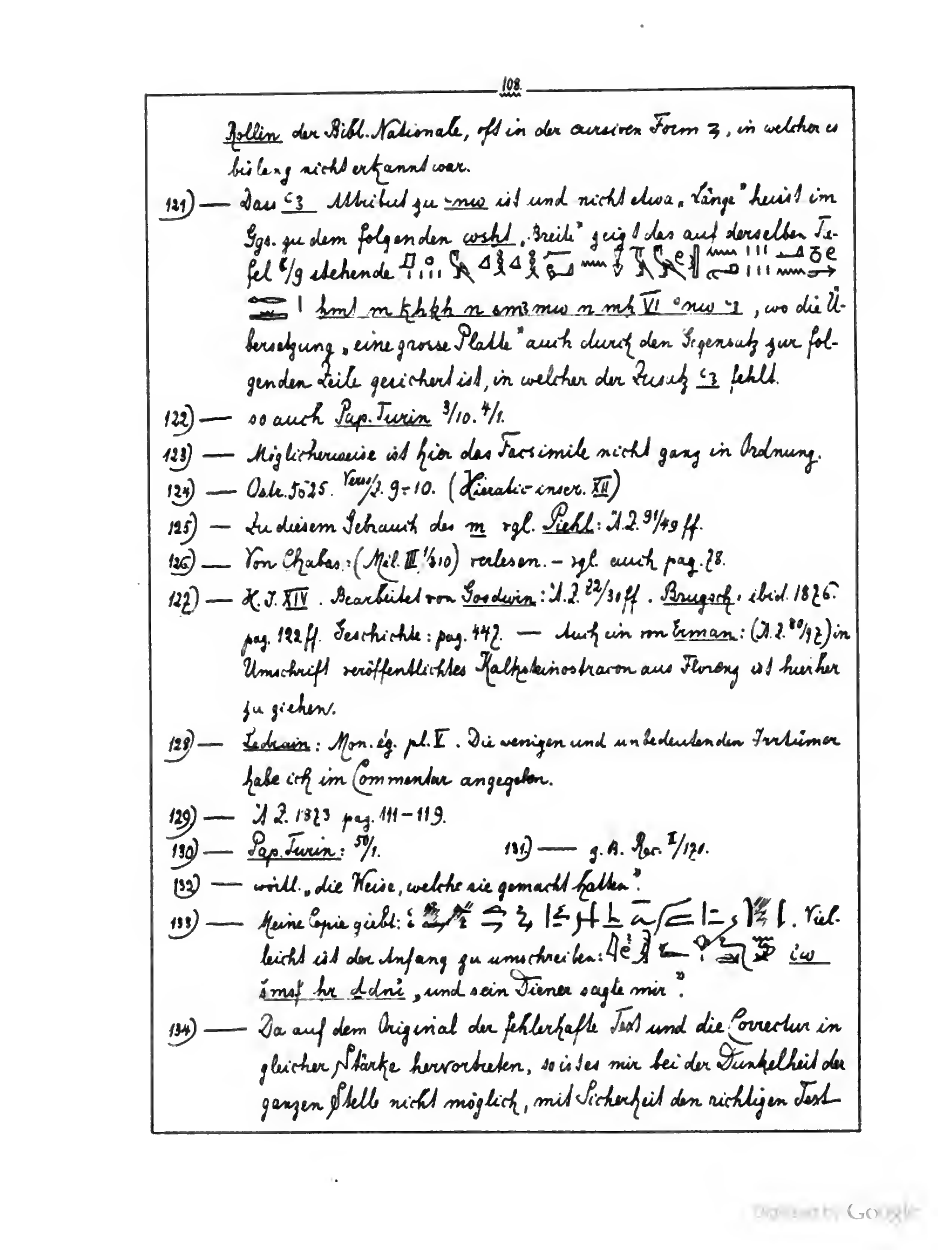 108.
Rollin der Bibl. Nationale, oft in der cursiven Form, in welcher es
bislang nicht erkannt war.
121) — Dass ꜥꜣ Attribut zu -nw ist und nicht etwa „Länge" heisst im
Ggs. zu dem folgenden wsht „Breite" zeigt das auf derselben Ta-
fel 6/9 stehende
hmt m khkh n smꜣ mw n mh VI nw ꜥꜣ, wo die Ü-
bersetzung „eine grosse Platte" auch durch den Gegensatz zur fol-
genden Zeile gesichert ist, in welcher der Zusatz ꜥꜣ fehlt.
122) — so auch Pap. Turin 3/10. 4/1.
123) — Möglicherweise ist hier das Facsimile nicht ganz in Ordnung.
124) — Ostr. 5625. Verso/2. 9-10. (Hieratic inscr. XII)
125) — Zu diesem Gebrauch des m vgl. Piehl: Ä.Z. 91/49 ff.
126) — Von Chabas: (Mél. III 1/310) verlesen. – vgl. auch pag. 78.
127) — H.I. XIV. Bearbeitet von Goodwin: Ä.Z. 72/30ff. Brugsch, ibid. 1876.
pag. 122 ff. Geschichte: pag. 447. — Auch ein von Erman: (Ä.Z. 80/97) in
Umschrift veröffentlichtes Kalksteinostracon aus Florenz ist hierher
zu ziehen.
128) — Ledrain: Mon. ég. pl. V. Die wenigen und unbedeutenden Irrtümer
habe ich im Commentar angegeben.
129) — Ä.Z. 1873 pag. 111–119.
130) — Pap. Turin: 50/1. 131.) — z.B. Rec. II/171.
132) — wörtl. „die Weise, welche sie gemacht hatten".
133) — Meine Copie giebt: . Viel-
leicht ist der Anfang zu umschreiben: iw
šmsf hr ddni „und sein Diener sagte mir".
134) — Da auf dem Original der fehlerhafte Text und die Correctur in
gleicher Stärke hervortreten, so ist es mir bei der Dunkelheit der
ganzen Stelle nicht möglich, mit Sicherheit den richtigen Text
Digitized by Google